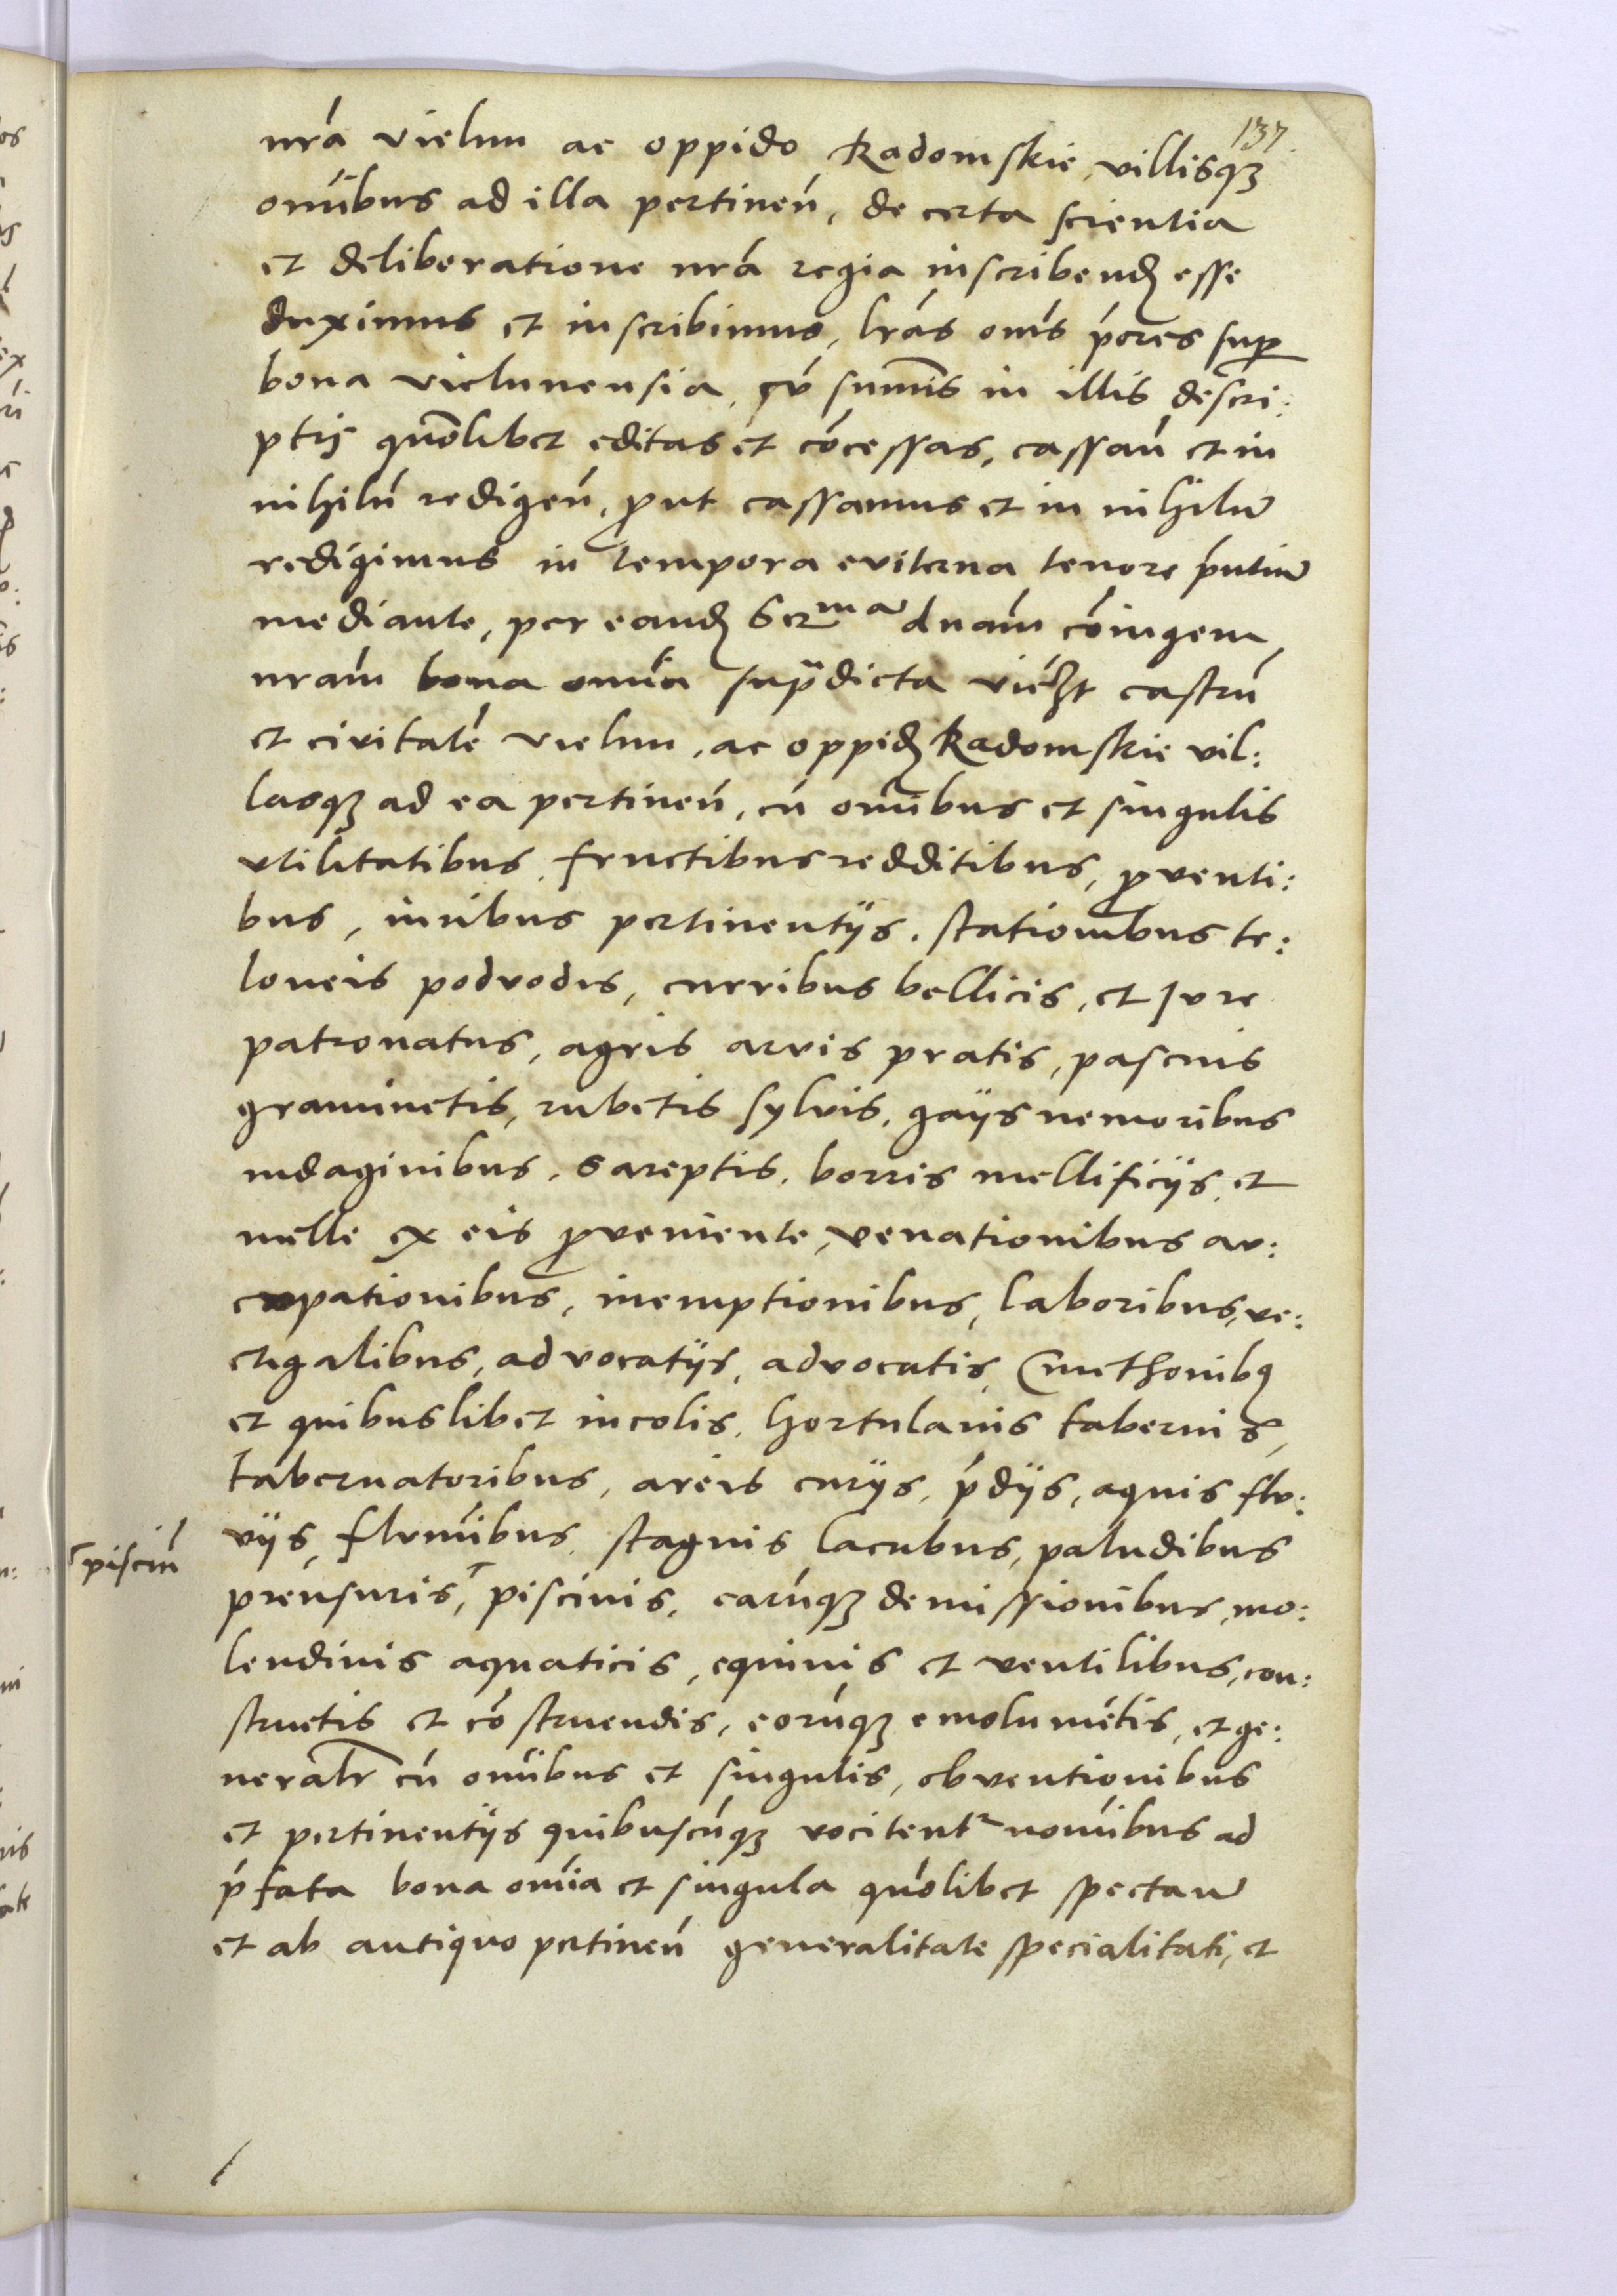 137
nrá vielun ac oppido Radomskie, villisqꝫ
omíbus ad illa pertineń, de certa scientia
et deliberatione nrá regia inscribenꝺ esse
duximus et inscribimus, lrás oms príores sup
bona vielunensia, cū summis in illis descri:
ptis quōlibet editas et cōcessas, cassań et in
nihilū redigeń, ꝓut cassamus et in nihilū
redigimus in tempora eviterna tenore pńtium
mediante, per eanꝺ Serma dnám cōiugem
nrám bona omía supradicta vidꝫt castrū
et civitatē vielun, ac oppiꝺ Radomskie vil:
lasqꝫ ad ea pertineń, cū omíbus et singulis
vtilitatibus, fructibus redditibus, ꝓventi:
bus, iuribus pertinentijs, stationibus te:
loneis podvodis, curribus bellicis, et Jvre
patronatus, agris arvis pratis, pascuis
graminetis, rubetis sylvis, gays nemoribus
indaginibus, sareptis, borris mellificijs, et
melle ex eis ꝓveniente, venationibus av:
cupationibus, inemptionibus, laboribus, ve:
ctigalibus, advocatijs, advocatis, Cmethonibꝯ
et quibuslibet incolis, hortulanis tabernis,
tabernatoribus, areis curijs, pdijs, aquis flv:
vijs, flvmíbus, stagnis lacubus, paludibus
prensuris, ⸢ piscinis, earūqꝫ demissionibus, mo:
⸢ pisciū
lendinis aquaticis, equinis et ventilibus, con:
structis et cōstruendis, eorūqꝫ emolumētis, et ge:
neralr cū omíbus et singulis, obventionibus
et pertinentijs quibuscūqꝫ vocitentr nomíbus ad
pfata bona omía et singula quōlibet spectań
et ab antiquo pertineń generalitate specialitati, et